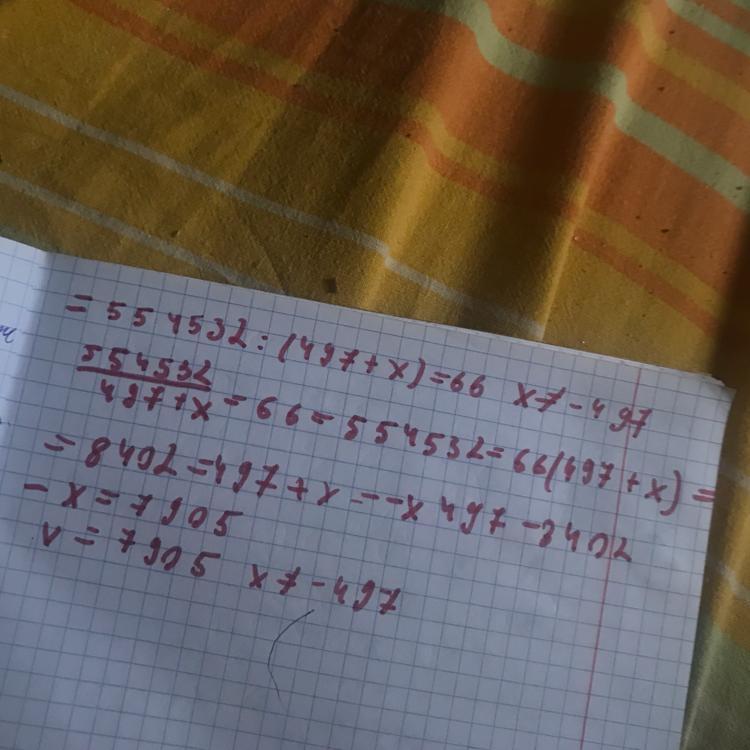 = 554532 : (497+x) = 66 x7 - 497
554532
497+x = 66 = 554532 = 66(497+x) =
= 8402 = 497 + x = -x 497 - 8402
- x = 7905
v = 7905 x7 - 497